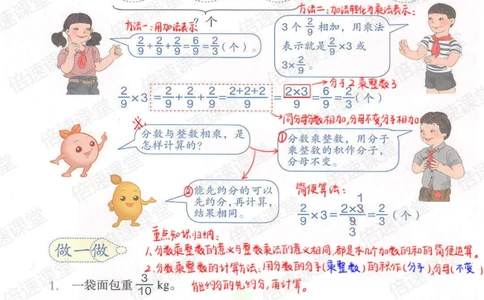 ? 个
方法一:用加法表示
方法二:加法转化为乘法表示:
2/9+2/9+2/9=6/9=2/3(个)。
3个 2/9 相加,用乘法
表示就是 2/9×3 或
3×2/9。
分子2乘整数3
2/9×3=2/9+2/9+2/9=2+2+2/9=2×3/9=6/9=2/3(个)
同分母分数相加,分母不变分子相加
分数与整数相乘,是
怎样计算的?
①分数乘整数,用分子
乘整数的积作分子,
分母不变。
②能先约分的可以
先约分,再计算,
结果相同。
简便算法:
2/9×3=2×3/9=2/3(个)
1
3
重点知识归纳:
做一做
1.分数乘整数的意义与整数乘法的意义相同,都是求几个加数的和的简便运算。
2.分数乘整数的计算方法:用分数的分子(乘整数)的积作(分子),分母(不变)
能约分的先约分,再计算。
1. 一袋面包重 3/10 kg。
倍速课堂